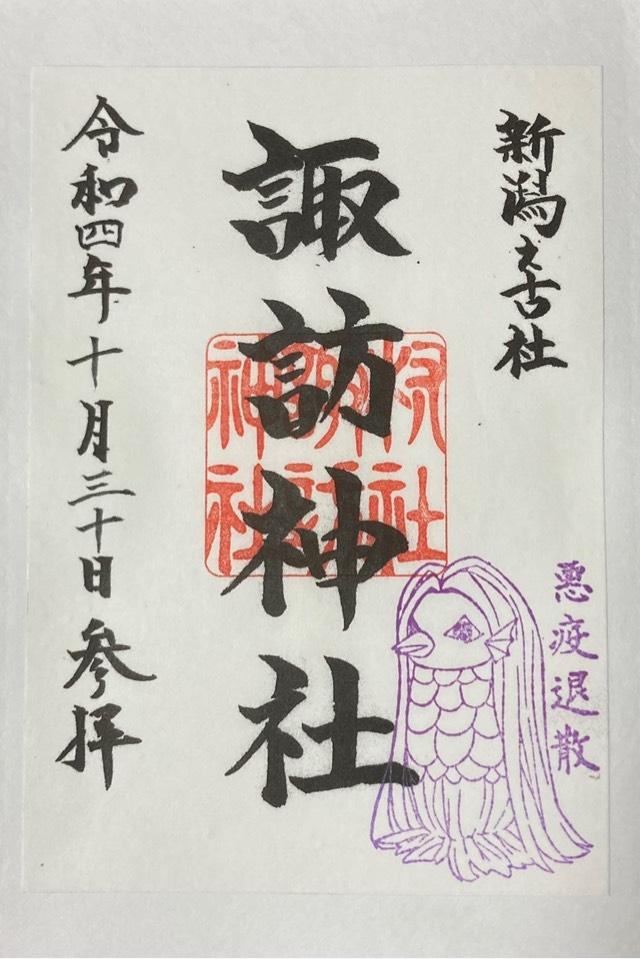 新潟之古社
諏訪神社
令和四年十月三十日参拝
悪疫退散